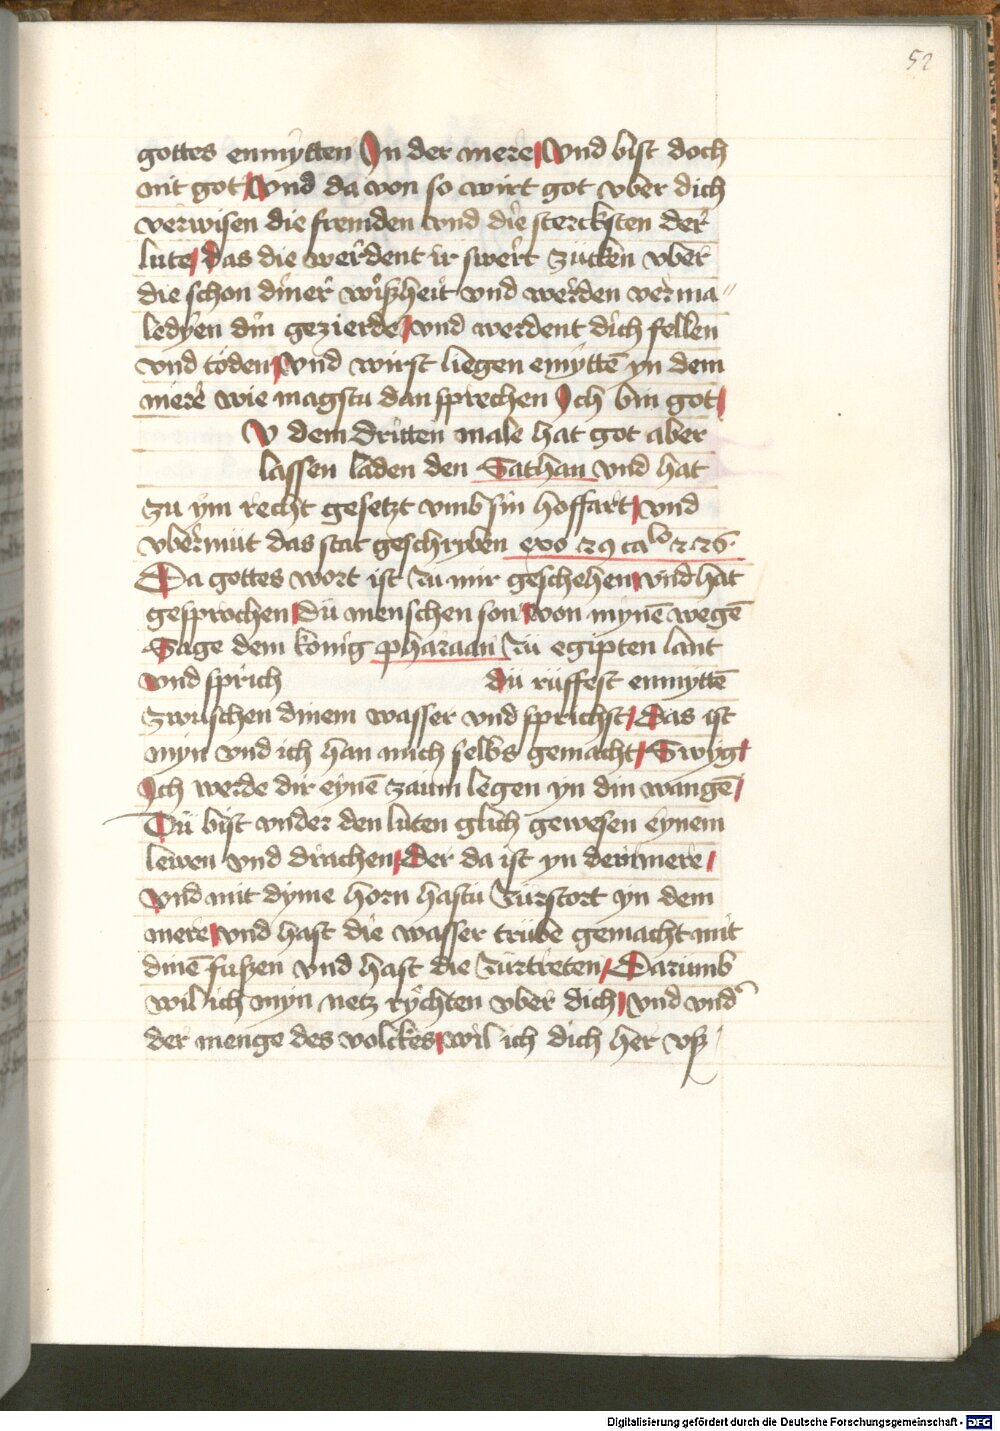 52
gottes enmÿtten In der mere Vnd bist doch
mit got Vnd da von so wirt got vber dich
verwisen die fremden vnd die stercksten der
lute das die werdent ir swert zücken vber
die schon diner wißheit vnd werden verma〃
ledÿen din gezierde vnd werdent dich fellen
vnd töden Vnd wirst liegen emÿttē yn dem
mere wie magstu dan sprechen Ich bin got
V dem dritten male hat got aber
lassen laden den Sathan vnd hat
zu ÿm recht gesetzt vmb sin hoffart vnd
vbermüt das stat geschryben exo
Da gottes wort ist zu mir geschehen vnd hat
gesprochen Dü menschen son von mynē wegē
Sage dem konig pharaan Zü egipten lant
vnd sprich dü rüffest enmyttē
zwuschen dinem wasser vnd sprichst Das ist
myn vnd ich han mich selbs gemacht Swyg
Ich werde dir eynē zaum legen yn din wangē
Dü bist vnder den luten glich gewesen eynem
lewen vnd drachen Der da ist yn dem mere
Vnd mit dyme horn hastu Zürstort yn dem
mere vnd hast die wasser trübe gemacht mit
dinē fußen vnd hast die Zürtreten Darumb
wil ich myn netz rÿchten vber dich vnd vnd̾
der menge des volckes wil ich dich her vß
Digitalisierung gefördert durch die Deutsche Forschungsgemeinschaft - DFG